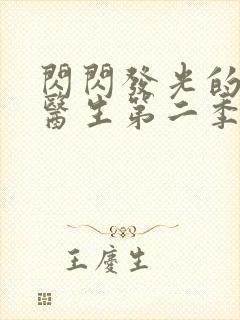 閃閃發光的
醫生第二季
王慶生